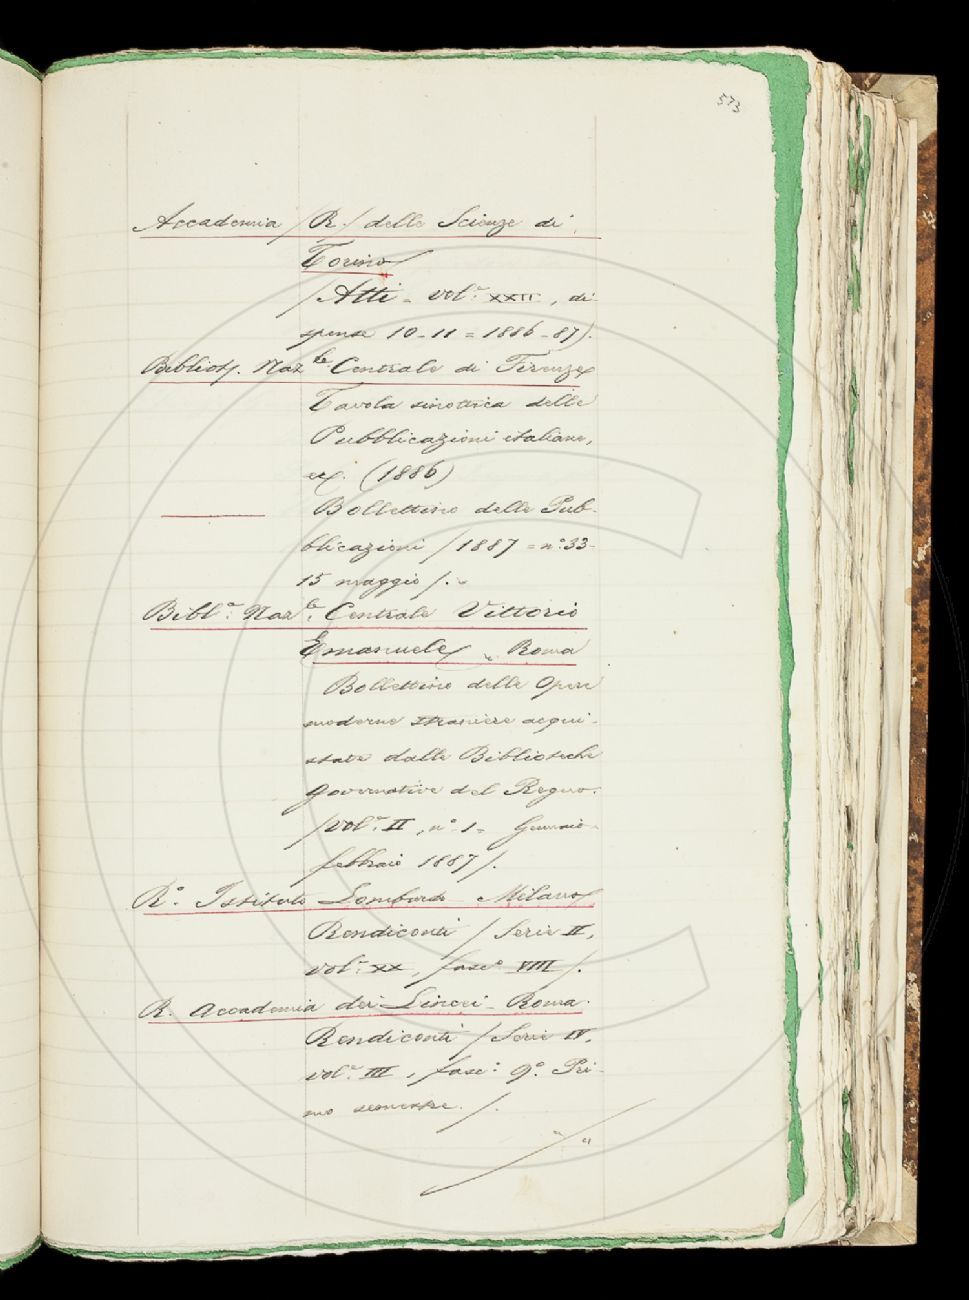 573
Accademia /R./ delle Scienze di
Torino/
/Atti - vol.e XXII, di-
spense 10-11 = 1886-87).
Bibliot. Naz.le Centrale di Firenze
Tavola sinottica delle
Pubblicazioni italiane,
ec. (1886)
Bollettino delle Pub-
blicazioni /1887 = n.° 33-
15 maggio/.
Bibl.a Naz.le Centrale Vittorio
Emanuele, Roma
Bollettino delle Opere
moderne straniere acqui-
state dalle Biblioteche
governative del Regno.
/vol.e II, n.° 1 = Gennaio-
febbraio 1887/.
R.° Istituto Lombardo Milano
Rendiconti /Serie II,
vol.e XX, fasc.° VIII/.
R. Accademia dei Lincei - Roma.
Rendiconti /Serie IV,
vol.e III, fasc. 9.° Pri-
mo semestre./.